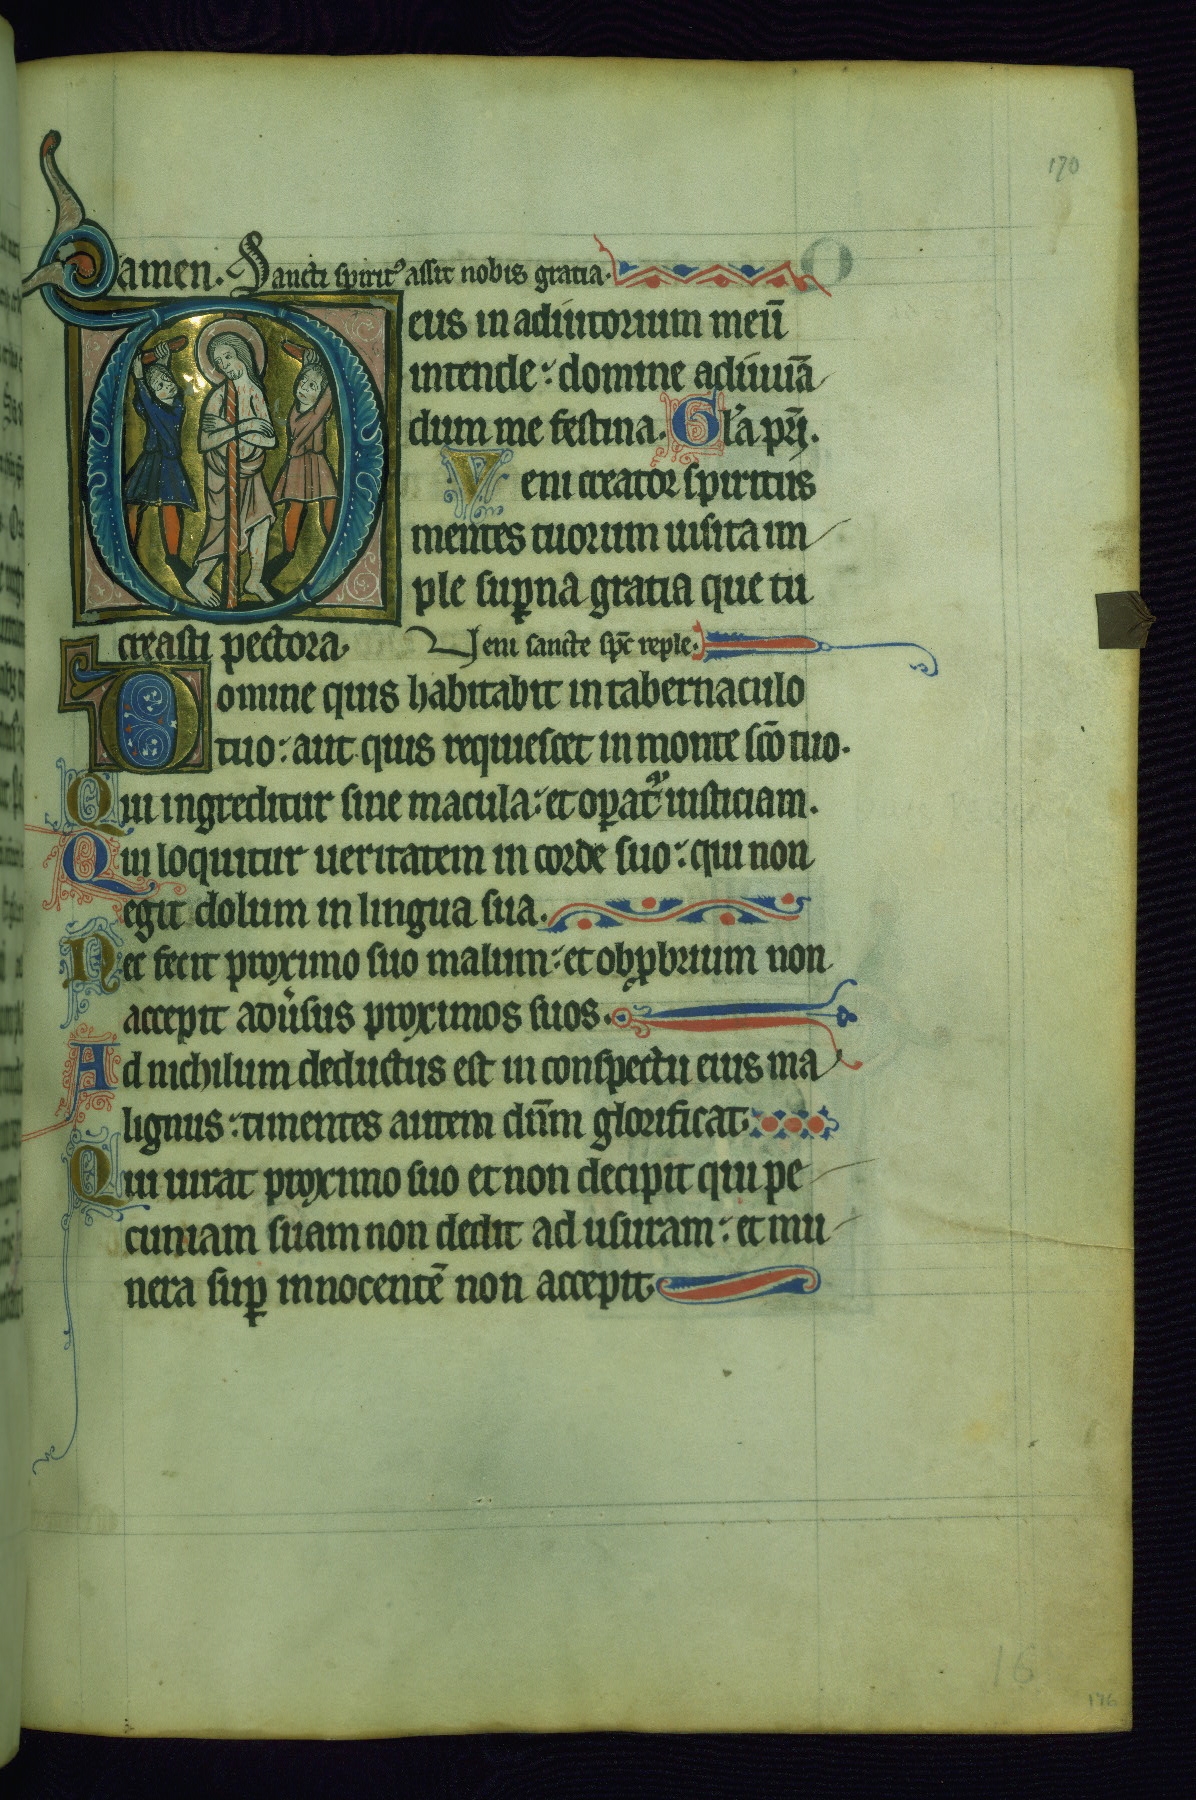 170
amen. Sancti spirit᾽ assit nobis gratia.
Deus in adiutorium meū
intende: domine adiuuā
dum me festina. Gl'a pr̄i.
Veni creator spiritus
mentes tuorum uisita im
ple sup̱na gratia que tu
creasti pectora. Veni sancte sp̄c reple.
Domine quis habitabit in tabernaculo
tuo: aut quis requiescet in monte sc̄o tuo.
Qui ingreditur sine macula: et op̱at᷑ iusticiam.
Qui loquitur ueritatem in corde suo: qui non
egit dolum in lingua sua.
Nec fecit proximo suo malum: et obp̱brium non
accepit adu̕sus proximos suos.
Ad nichilum deductus est in conspectu eius ma
lignus: timentes autem dn̄m glorificat.
Qui iurat proximo suo et non decipit qui pe
cuniam suam non dedit ad usuram: et mu
nera sup̱ innocentē non accepit.
16
176